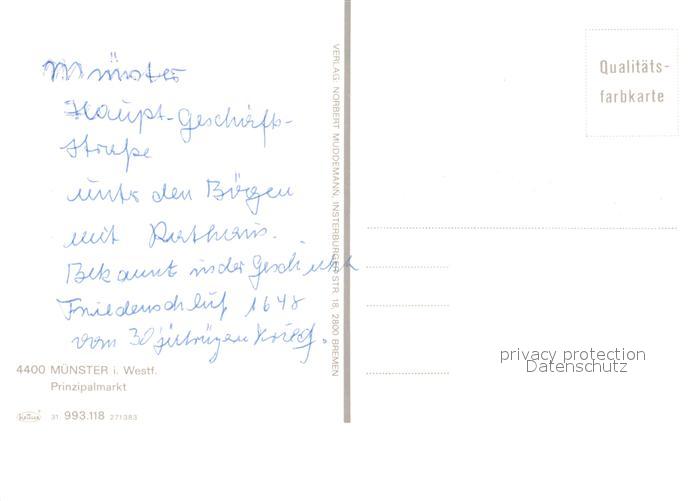 Münster
Haupt-Geschäfts-
straße
unter den Bögen
mit Rathaus.
Bekannt in der Geschichte
Friedenschluß 1648
vom 30 jährigen Krieg.
4400 MÜNSTER i. Westf.
Prinzipalmarkt
31. 993.118 271383
VERLAG: NORBERT MUDDEMANN, INSTERBURGER STR. 18, 2800 BREMEN
Qualitäts-
farbkarte
privacy protection
Datenschutz